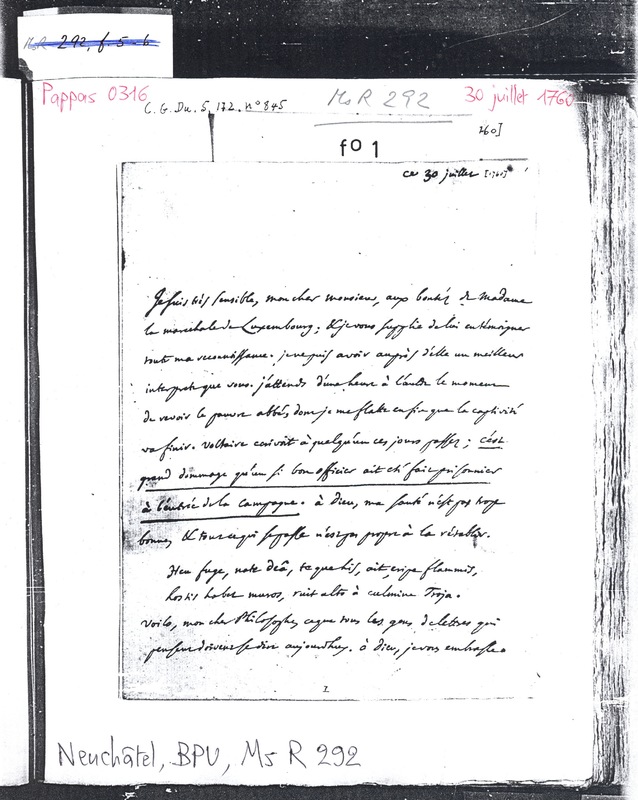 MsR 292, f. 5-6
Pappas 0316
C. G. Du. 5, 172. n° 845
MsR 292
30 juillet 1760
260]
fo 1
ce 30 juillet [1760]
Je suis très sensible, mon cher monsieur, aux bontés de Madame
la marechale de Luxembourg; & je vous supplie de lui en temoigner
toute ma reconnoissance. je ne puis avoir auprès d'elle un meilleur
interprete que vous. j'attends d'une heure à l'autre le moment
de revoir le pauvre abbé, dont je me flatte enfin que la captivité
va finir. Voltaire ecrivoit à quelqu'un ces jours passés; c'est
grand dommage qu'un si bon officier ait eté fait prisonnier
à l'entrée de la campagne. à Dieu, ma santé n'est pas trop
bonne, & tout ce qui se passe n'est pas propre à la rétablir.
Heu fuge, nate deâ, teque his, ait, eripe flammis,
hostis habet muros, ruit alto à culmine Troja.
voilà, mon cher Philosophe, ce que tous les gens de lettres qui
pensent doivent se dire aujourdhuy. à Dieu, je vous embrasse
Neuchâtel, BPU, Ms R 292